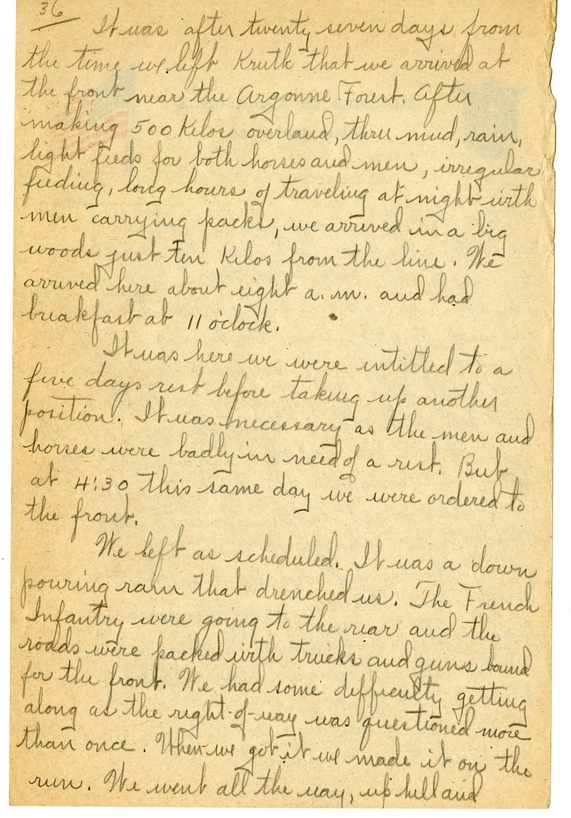 36
It was after twenty seven days from
the time we left Kruth that we arrived at
the front near the Argonne Forest. After
making 500 Kilos overland, thru mud, rain,
light feeds for both horses and men, irregular
feeding, long hours of traveling at night with
men carrying packs, we arrived in a big
woods just ten Kilos from the line. We
arrived here about eight a.m. and had
breakfast at 11 o'clock.
It was here we were intitled to a
five days rest before taking up another
position. It was necessary as the men and
horses were badly in need of a rest. But
at 4:30 this same day we were ordered to
the front.
We left as scheduled. It was a down
pouring rain that drenched us. The French
Infantry were going to the rear and the
roads were packed with trucks and guns bound
for the front. We had some difficulty getting
along as the right-of-way was questioned more
than once. When we got it we made it on the
run. We went all the way, up hill and